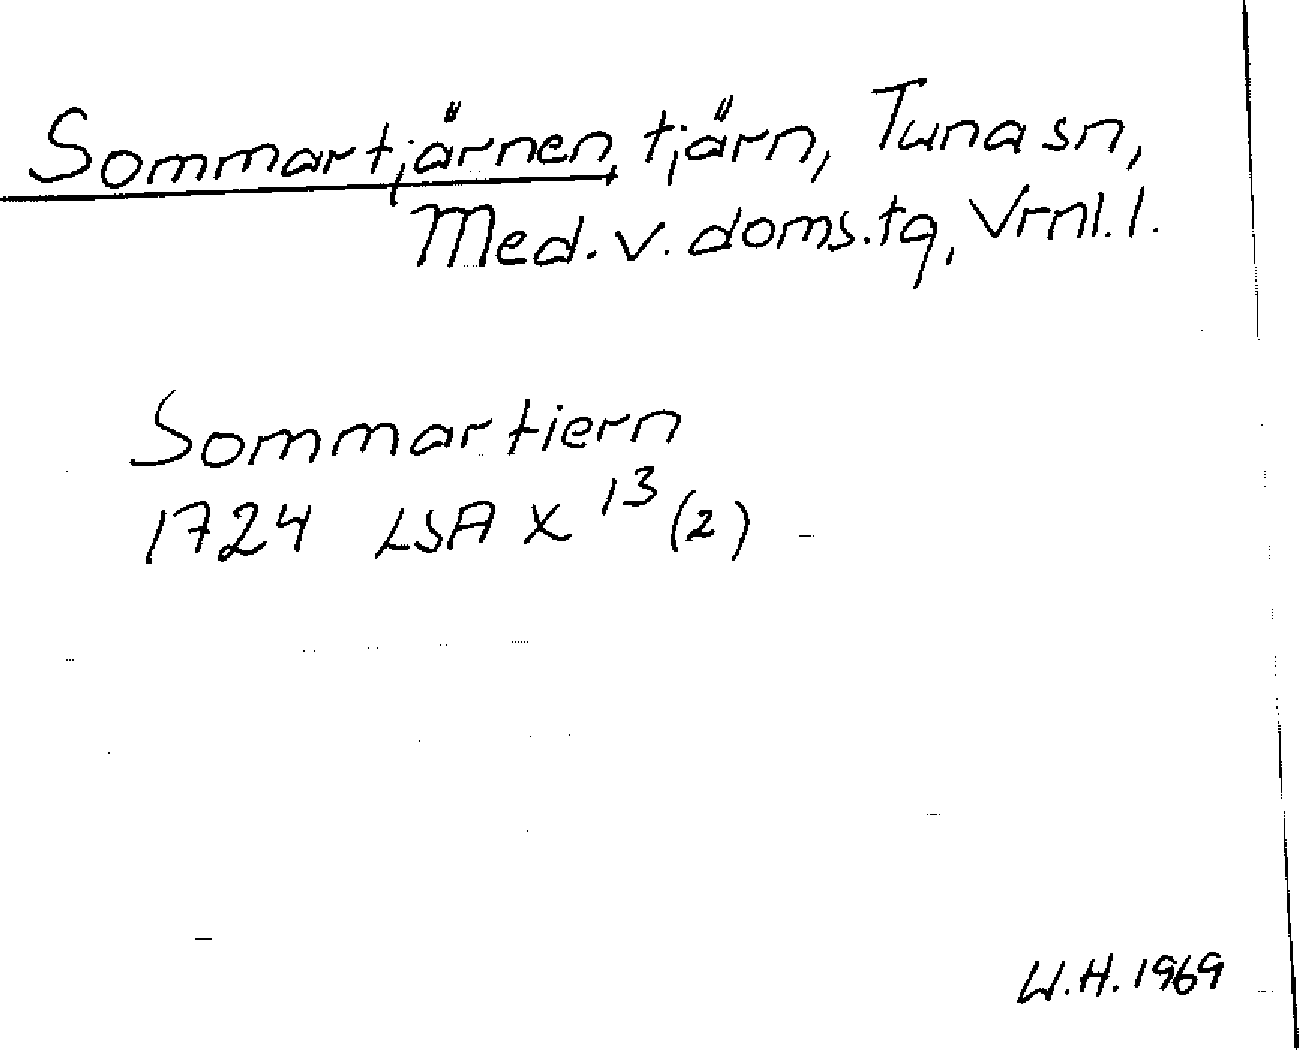 Sommartjärnen, tjärn, Tuna sn,
Med. v. doms.tg, Vrnl. l.
Sommartiern
1724 LSA X 13 (2)
W.H. 1969